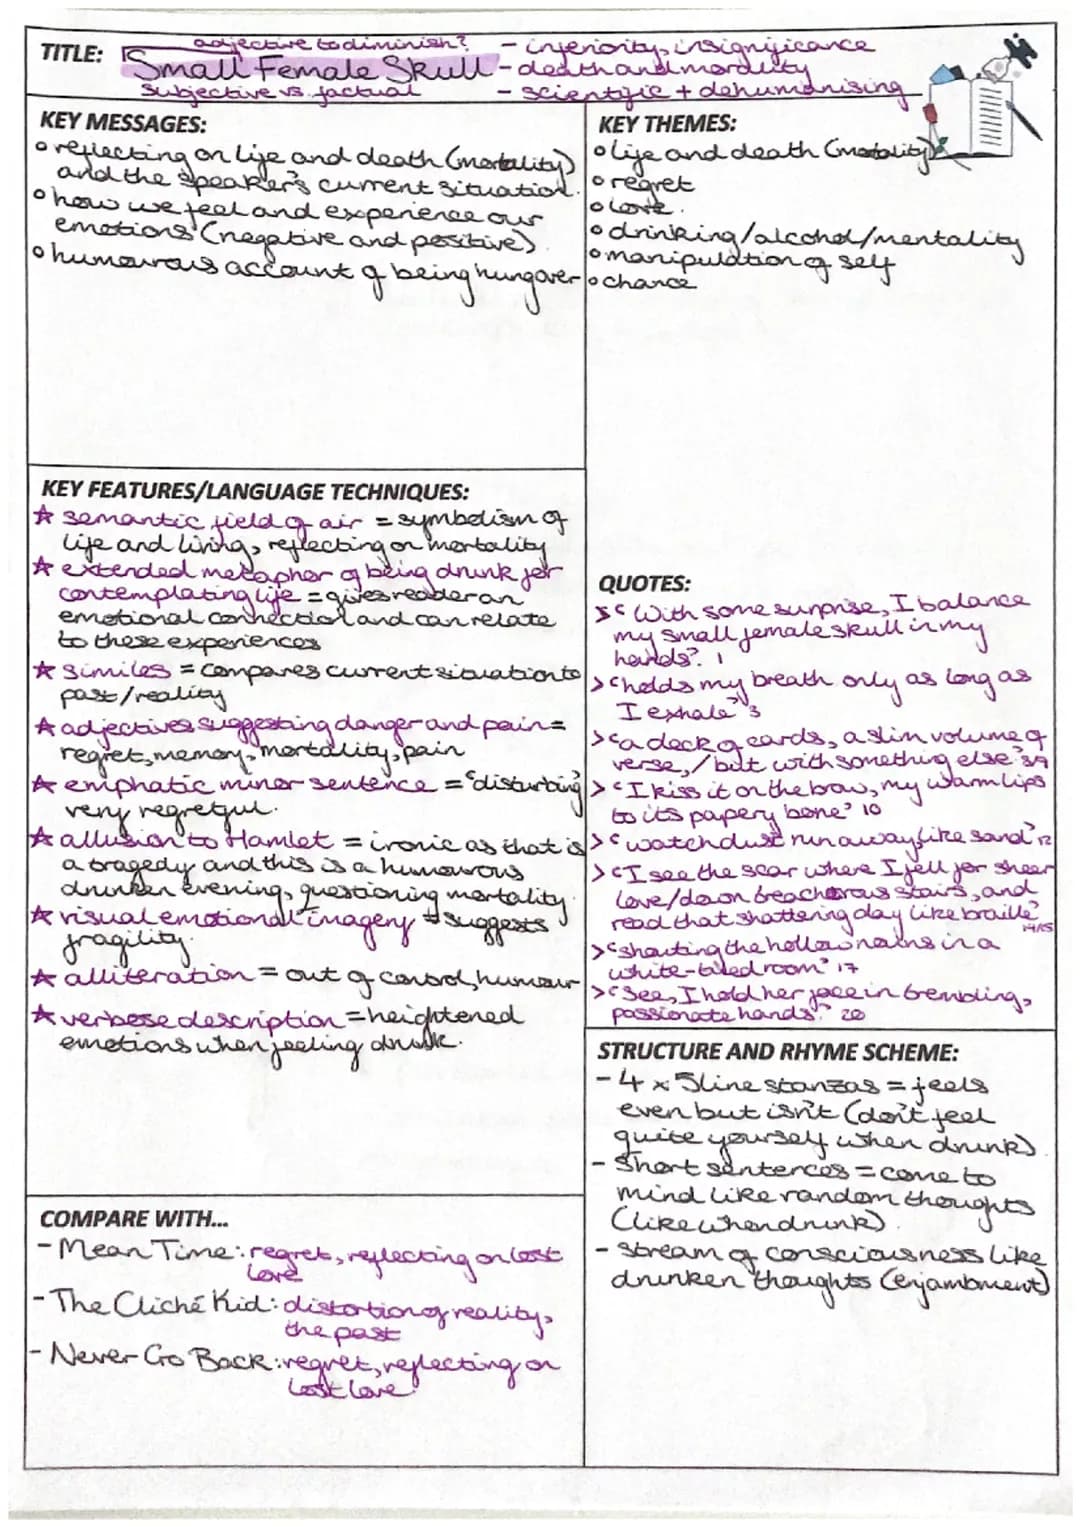 adjective to diminish? - inferiority, insignificance
TITLE: Small Female Skull - death and morality
subjective vs. factual - scientific + dehumanising
KEY MESSAGES:
o reflecting on life and death (mortality)
and the speaker's current situation.
o how we feel and experience our
emotions (negative and positive)
o humourous account of being hungover
KEY THEMES:
o life and death (mortality)
o regret
o love.
o drinking/alcohol/mentality
o manipulation of self
o chance
KEY FEATURES/LANGUAGE TECHNIQUES:
☆ semantic field of air = symbolism of
life and living, reflecting on mortality
☆ extended metaphor of being drunk for
contemplating life = gives reader an
emotional connection and can relate
to these experiences
☆ similes = compares current situation to
past/reality
☆ adjectives suggesting danger and pain =
regret, memory, mortality, pain
☆ emphatic minor sentence = 'disturbing'
very regretful.
☆ allusion to Hamlet = ironic as that is
a tragedy and this is a humourous
drunken evening, questioning mortality.
☆ visual emotional imagery = suggests
fragility.
☆ alliteration = out of control, humour
☆ verbose description = heightened
emotions when feeling drunk.
QUOTES:
> 'With some surprise, I balance
my small female skull in my
hands'. 1
> 'holds my breath only as long as
I exhale' 3
> 'a deck of cards, a slim volume of
verse, / but with something else'
> 'I kiss it on the brow, my warm lips
to its papery bone' 10
> 'watch dust run away, like sand' 12
> 'I see the scar where I fell for sheer
love/down treacherous stairs, and
read that shattering day like braille'
14/15
> 'shouting the hollow nouns in a
white-tiled room' 17
> 'See, I hold her face in trembling,
passionate hands.' 20
STRUCTURE AND RHYME SCHEME:
- 4 x 5 line stanzas = feels
even but isn't (don't feel
quite yourself when drunk)
- Short sentences = come to
mind like random thoughts
(like when drunk).
- stream of consciousness like
drunken thoughts (enjambment)
COMPARE WITH...
- Mean Time: regret, reflecting on lost
love
- The Cliché Kid: distortion of reality,
the past
- Never Go Back: regret, reflecting on
lost love.